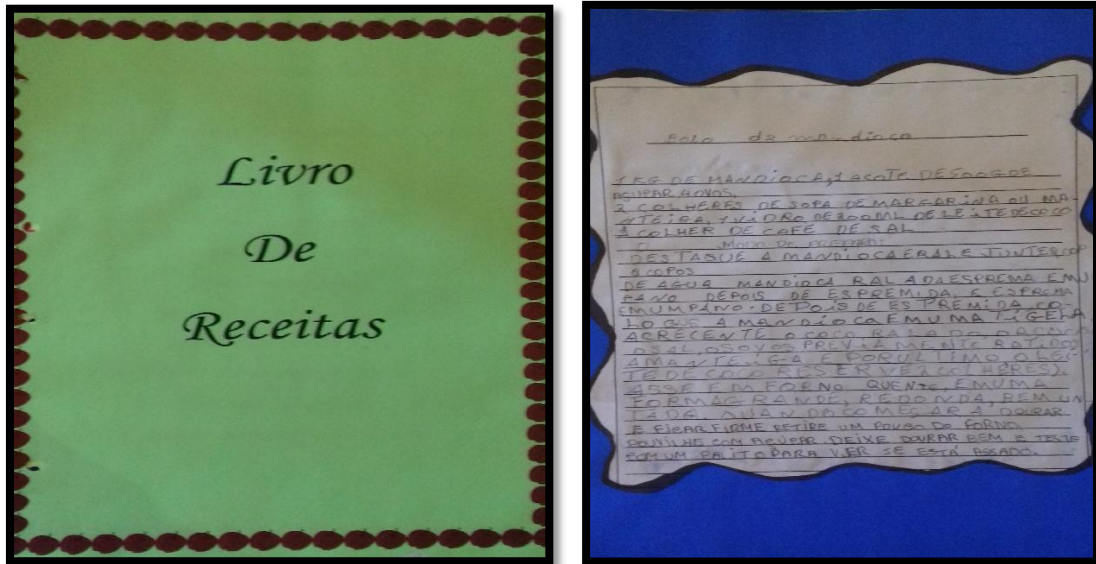 Livro
De
Receitas
Bolo de mandioca
1 KG DE MANDIOCA, 1
AÇUPAR 4 OVOS.
2 COLHERES DE SOPA DE MARGARINA OU MA-
NTEIGA, 1 VIDRO DE 200ML DE LEITE DE COCO
1 COLHER DE CAFÉ DE SAL
MODO DE
A MANDIOCA E RALE E JUNTE
8 COPOS
DE AGUA MANDIOCA RALADA ESPREMA EMU
PANO DEPOIS DE ESPREMIDA, E ESPREMA
EMUMPANO. DEPOIS DE ESPREMIDA CO-
LOQUE A MANDIOCA EM UMA TIGELA
ACRECENTE O COCO RALADO O
OSAL, OSOVOS PREVIAMENTE BATIDOS
AMANTE. GA E PORULTIMO, O LEI-
TE DE COCO RESERVE 2 COLHERES).
ASSE EM FORNO QUENTE, EMUMA
FORMA GRANDE, REDONDA, BEM UN
TADA. QUANDO COMEÇAR A DOURAR
E FICAR FIRME RETIRE UM POUCO DO FORNO
POUVILHE COM AÇUPAR DEIXE DOURAR BEM E TESTE
COM UM PALITO PARA VER SE ESTÁ ASSADO.